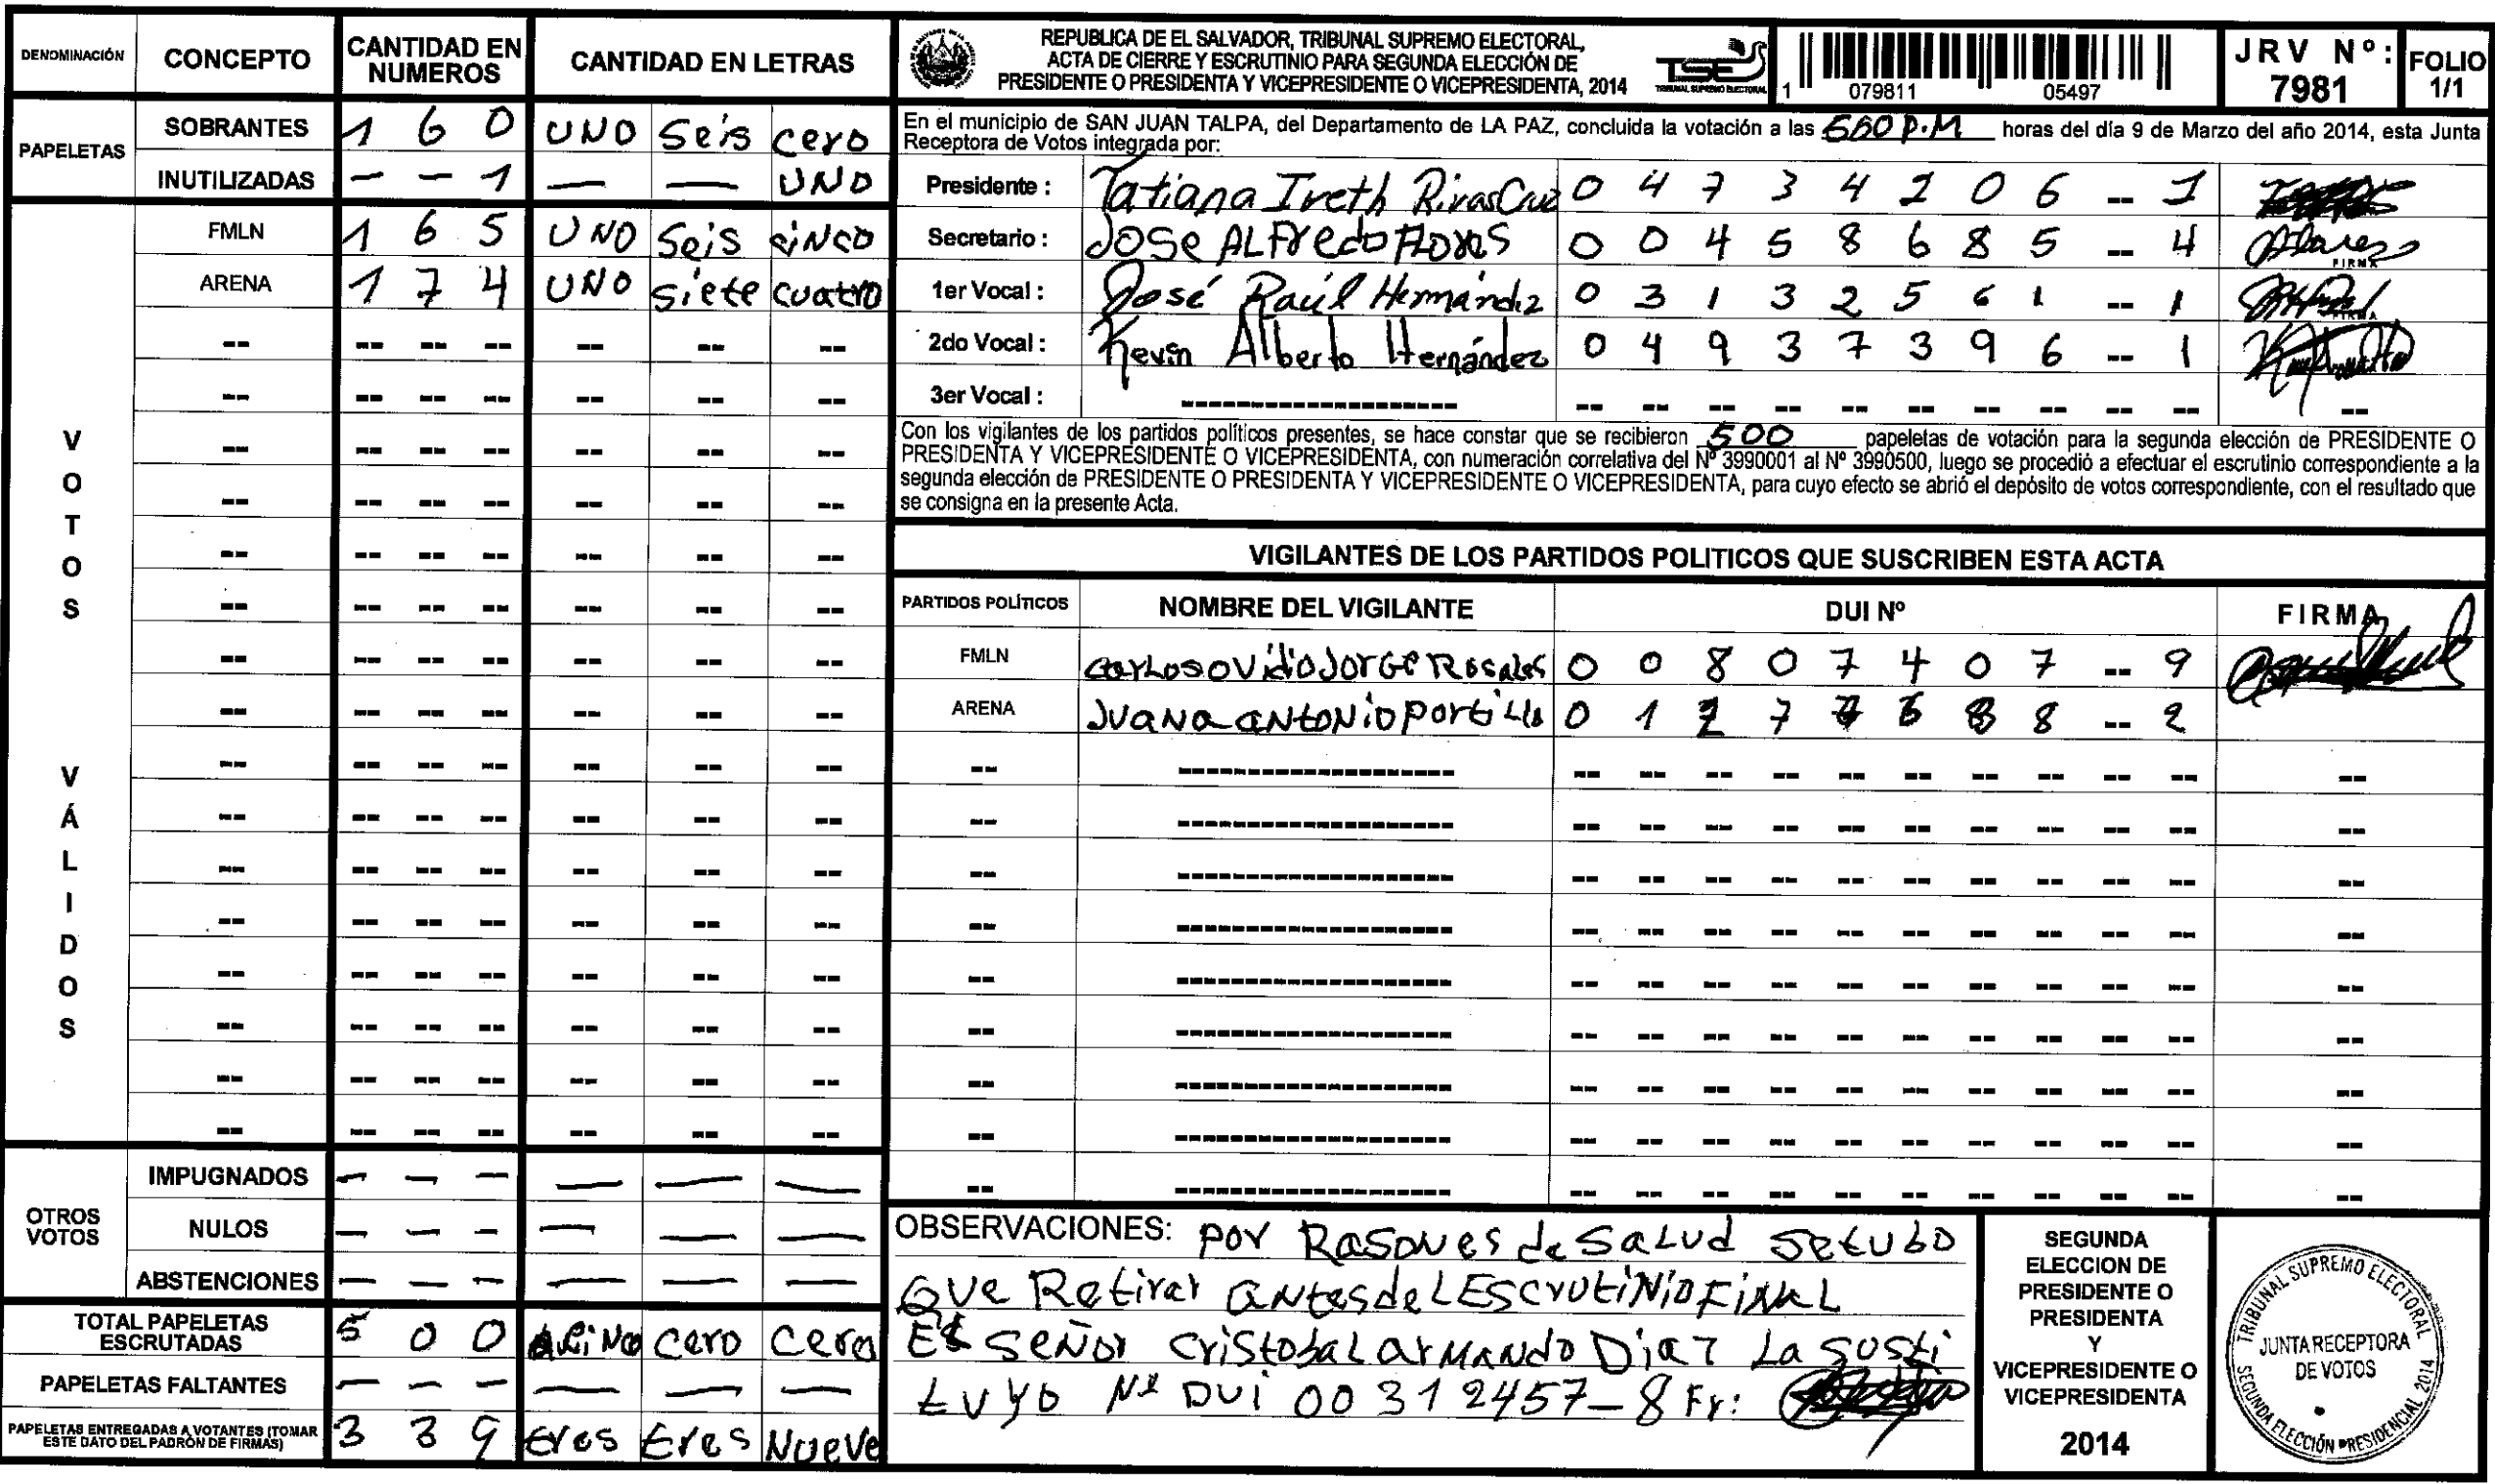 DENOMINACIÓN CONCEPTO CANTIDAD EN NUMEROS CANTIDAD EN LETRAS
PAPELETAS
SOBRANTES 1 6 0 UNO Seis cero
INUTILIZADAS - - 1 — — UNO
VOTOS VÁLIDOS
FMLN 1 6 5 UNO Seis CINCO
ARENA 1 7 4 UNO siete cuatro
OTROS VOTOS
IMPUGNADOS - - - — — —
NULOS - - - — — —
ABSTENCIONES - - - — — —
TOTAL PAPELETAS ESCRUTADAS 5 0 0 cero Cero
PAPELETAS FALTANTES - - - — — —
PAPELETAS ENTREGADAS A VOTANTES (TOMAR ESTE DATO DEL PADRÓN DE FIRMAS) 3 3 9 tres tres Nueve
REPUBLICA DE EL SALVADOR, TRIBUNAL SUPREMO ELECTORAL,
ACTA DE CIERRE Y ESCRUTINIO PARA SEGUNDA ELECCIÓN DE
PRESIDENTE O PRESIDENTA Y VICEPRESIDENTE O VICEPRESIDENTA, 2014
TSE
TRIBUNAL SUPREMO ELECTORAL
1 079811 05497
JRV Nº: 7981
FOLIO 1/1
En el municipio de SAN JUAN TALPA, del Departamento de LA PAZ, concluida la votación a las P.M horas del día 9 de Marzo del año 2014, esta Junta
Receptora de Votos integrada por:
Presidente : Tatiana Iveth Rivas Cruz 0 4 7 3 4 2 0 6 -- 1
Secretario : JOSE ALFredo Flores 0 0 4 5 8 6 8 5 -- 4
FIRMA
1er Vocal : José Raúl Hernández 0 3 1 3 2 5 6 1 -- 1
FIRMA
2do Vocal : Kevin Alberto Hernández 0 4 9 3 7 3 9 6 -- 1
3er Vocal :
Con los vigilantes de los partidos políticos presentes, se hace constar que se recibieron 500 papeletas de votación para la segunda elección de PRESIDENTE O
PRESIDENTA Y VICEPRESIDENTE O VICEPRESIDENTA, con numeración correlativa del Nº 3990001 al Nº 3990500, luego se procedió a efectuar el escrutinio correspondiente a la
segunda elección de PRESIDENTE O PRESIDENTA Y VICEPRESIDENTE O VICEPRESIDENTA, para cuyo efecto se abrió el depósito de votos correspondiente, con el resultado que
se consigna en la presente Acta.
VIGILANTES DE LOS PARTIDOS POLITICOS QUE SUSCRIBEN ESTA ACTA
PARTIDOS POLÍTICOS NOMBRE DEL VIGILANTE DUI Nº FIRMA
FMLN carlos ovidio Jorge Rosales 0 0 8 0 7 4 0 7 -- 9
ARENA Juana antonio portillo 0 1 7 8 -- 2
OBSERVACIONES: por Rasones de Salud Setubo
Que Retirar antes deL EScrutiNio FiNaL
EL SEÑOr cristobal armando Diaz La susti
tuyo Nº DUI 00312457-8 Fr:
SEGUNDA
ELECCION DE
PRESIDENTE O
PRESIDENTA
Y
VICEPRESIDENTE O
VICEPRESIDENTA
2014
TRIBUNAL SUPREMO ELECTORAL
JUNTA RECEPTORA
DE VOTOS
SEGUNDA ELECCIÓN PRESIDENCIAL 2014